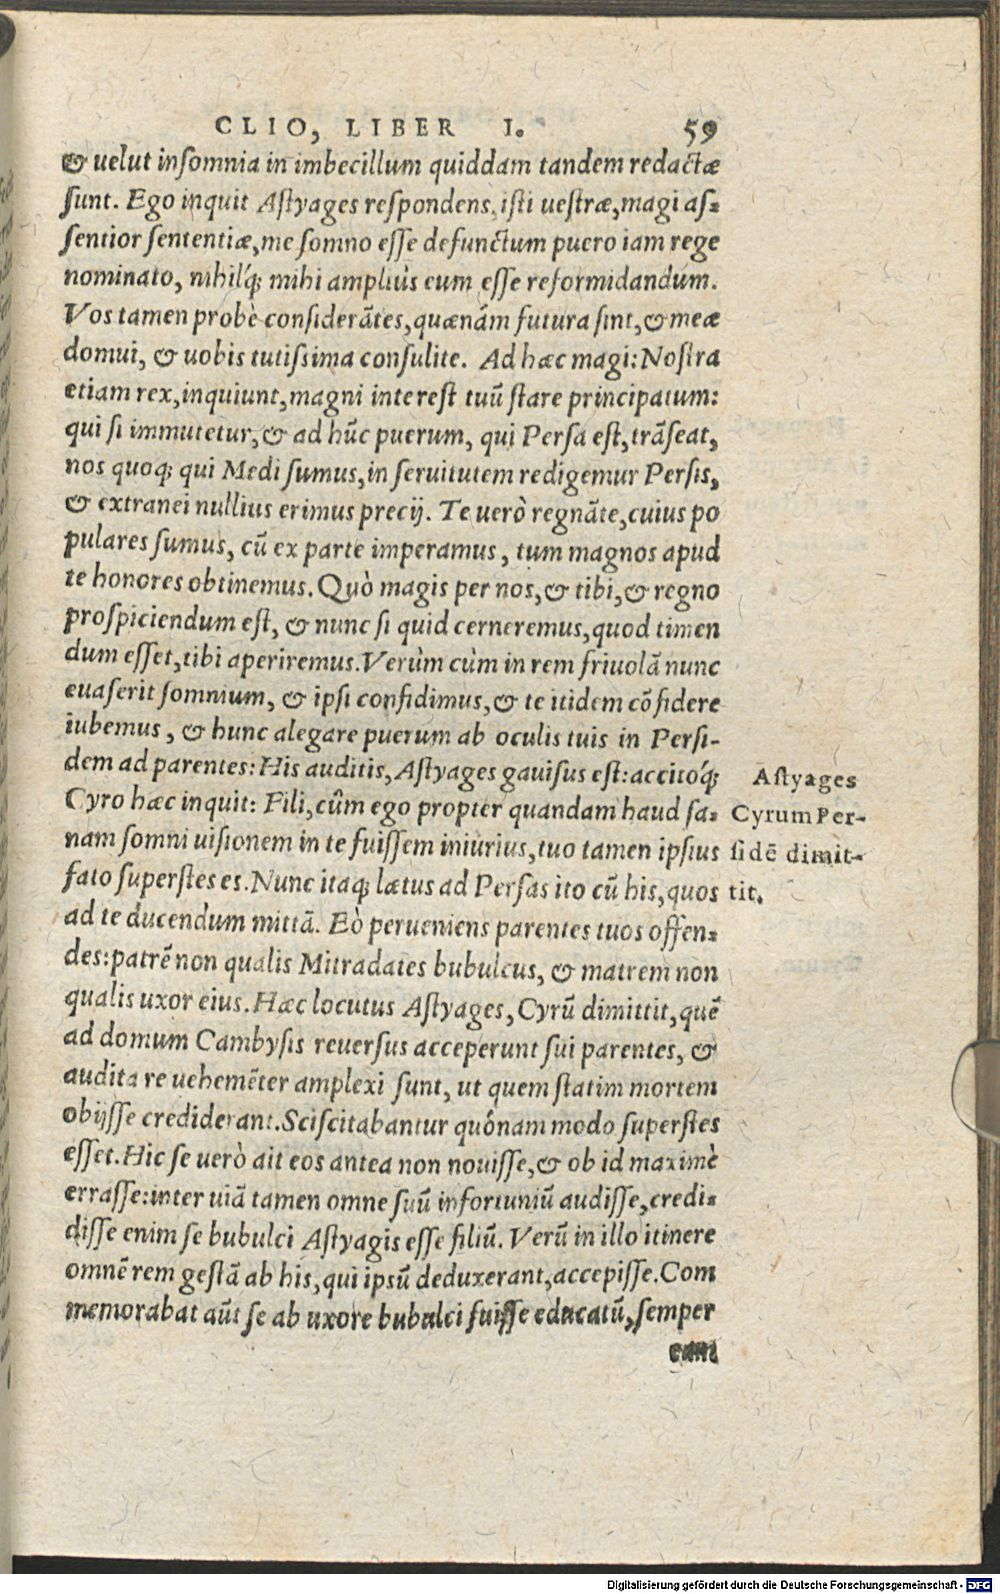 CLIO, LIBER I. 59
& uelut inſomnia in imbecillum quiddam tandem redactæ
ſunt. Ego inquit Aſtyages reſpondens, iſti ueſtræ, magi aſ-
ſentior ſententiæ, me ſomno eſſe defunctum puero iam rege
nominato, nihilq́; mihi ampliùs eum eſſe reformidandum.
Vos tamen probè conſiderātes, quænám futura ſint, & meæ
domui, & uobis tutiſsima conſulite. Ad hæc magi: Noſtra
etiam rex, inquiunt, magni intereſt tuū ſtare principatum:
qui ſi immutetur, & ad hūc puerum, qui Perſa eſt, trāſeat,
nos quoq; qui Medi ſumus, in ſeruitutem redigemur Perſis,
& extranei nullius erimus precij. Te uerò regnāte, cuius po
pulares ſumus, cū ex parte imperamus, tum magnos apud
te honores obtinemus. Quò magis per nos, & tibi, & regno
proſpiciendum eſt, & nunc ſi quid cerneremus, quod timen
dum eſſet, tibi aperiremus. Verùm cùm in rem friuolā nunc
euaſerit ſomnium, & ipſi confidimus, & te itidem cōfidere
iubemus, & hunc alegare puerum ab oculis tuis in Perſi-
dem ad parentes: His auditis, Aſtyages gauiſus eſt: accitoq́;
Cyro hæc inquit: Fili, cûm ego propter quandam haud ſa-
nam ſomni uiſionem in te fuiſſem iniurius, tuo tamen ipſius
fato ſuperſtes es. Nunc itaq; lætus ad Perſas ito cū his, quos
ad te ducendum mittā. Eò perueniens parentes tuos offen-
des: patrē non qualis Mitradates bubulcus, & matrem non
qualis uxor eius. Hæc locutus Aſtyages, Cyrū dimittit, quē
ad domum Cambyſis reuerſus acceperunt ſui parentes, &
audita re uehemēter amplexi ſunt, ut quem ſtatim mortem
obijſſe crediderant. Sciſcitabantur quónam modo ſuperſtes
eſſet. Hic ſe uerò ait eos antea non nouiſſe, & ob id maximè
erraſſe: inter uiā tamen omne ſuū infortuniū audiſſe, credi-
diſſe enim ſe bubulci Aſtyagis eſſe filiū. Verū in illo itinere
omnē rem geſtā ab his, qui ipſū deduxerant, accepiſſe. Com
memorabat aūt ſe ab uxore bubulci fuiſſe educatū, ſemper
eam
Aſtyages
Cyrum Per-
ſidē dimit-
tit.
Digitalisierung gefördert durch die Deutsche Forschungsgemeinschaft - DFG